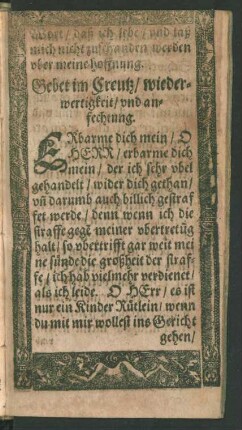 wort / daß ich lebe / und laß
mich nicht zuschanden werden
vber meine hoffnung.
Gebet im Creutz / wieder-
wertigkeit / vnd an-
fechtung.
ERbarme dich mein / O
HERR / erbarme dich
mein / der ich sehr vbel
gehandelt / wider dich gethan /
vñ darumb auch billich gestraf
fet werde / denn wenn ich die
straffe gegē meiner vbertretūg
halt / so vbertrifft gar weit mei
ne sünde die großheit der straf-
fe / ich hab vielmehr verdienet /
als ich leide. O HErr / es ist
nur ein Kinder Rütlein / wenn
du mit mir wollest ins Gericht
gehen /